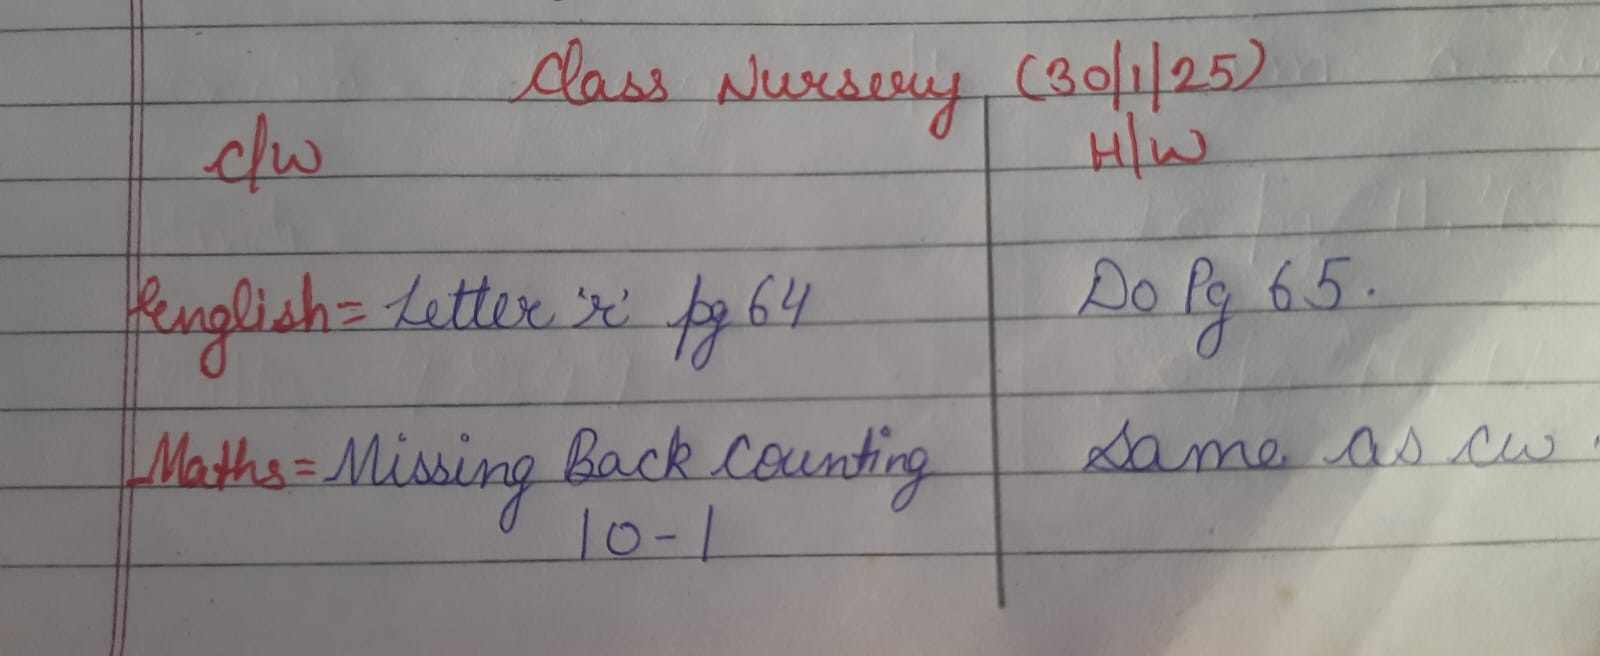 Class Nursery (30/1/25)
C/W H/W
English = Letter 'r' pg 64 Do Pg 65.
Maths = Missing Back Counting Same as cw.
10-1